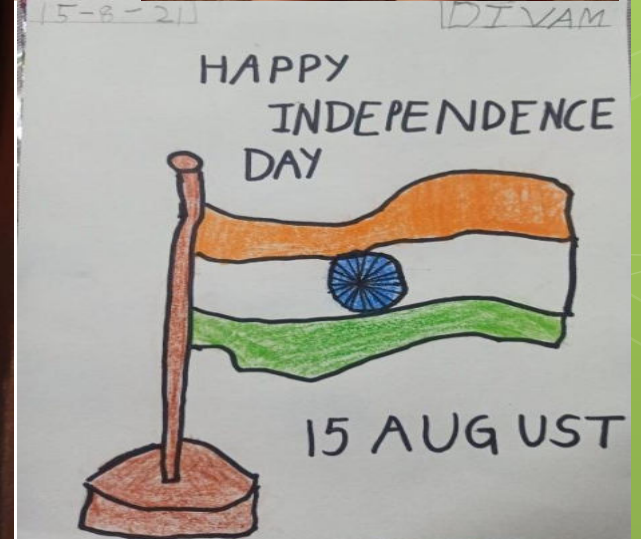 15-8-21 DIVAM
HAPPY
INDEPENDENCE
DAY
15 AUGUST